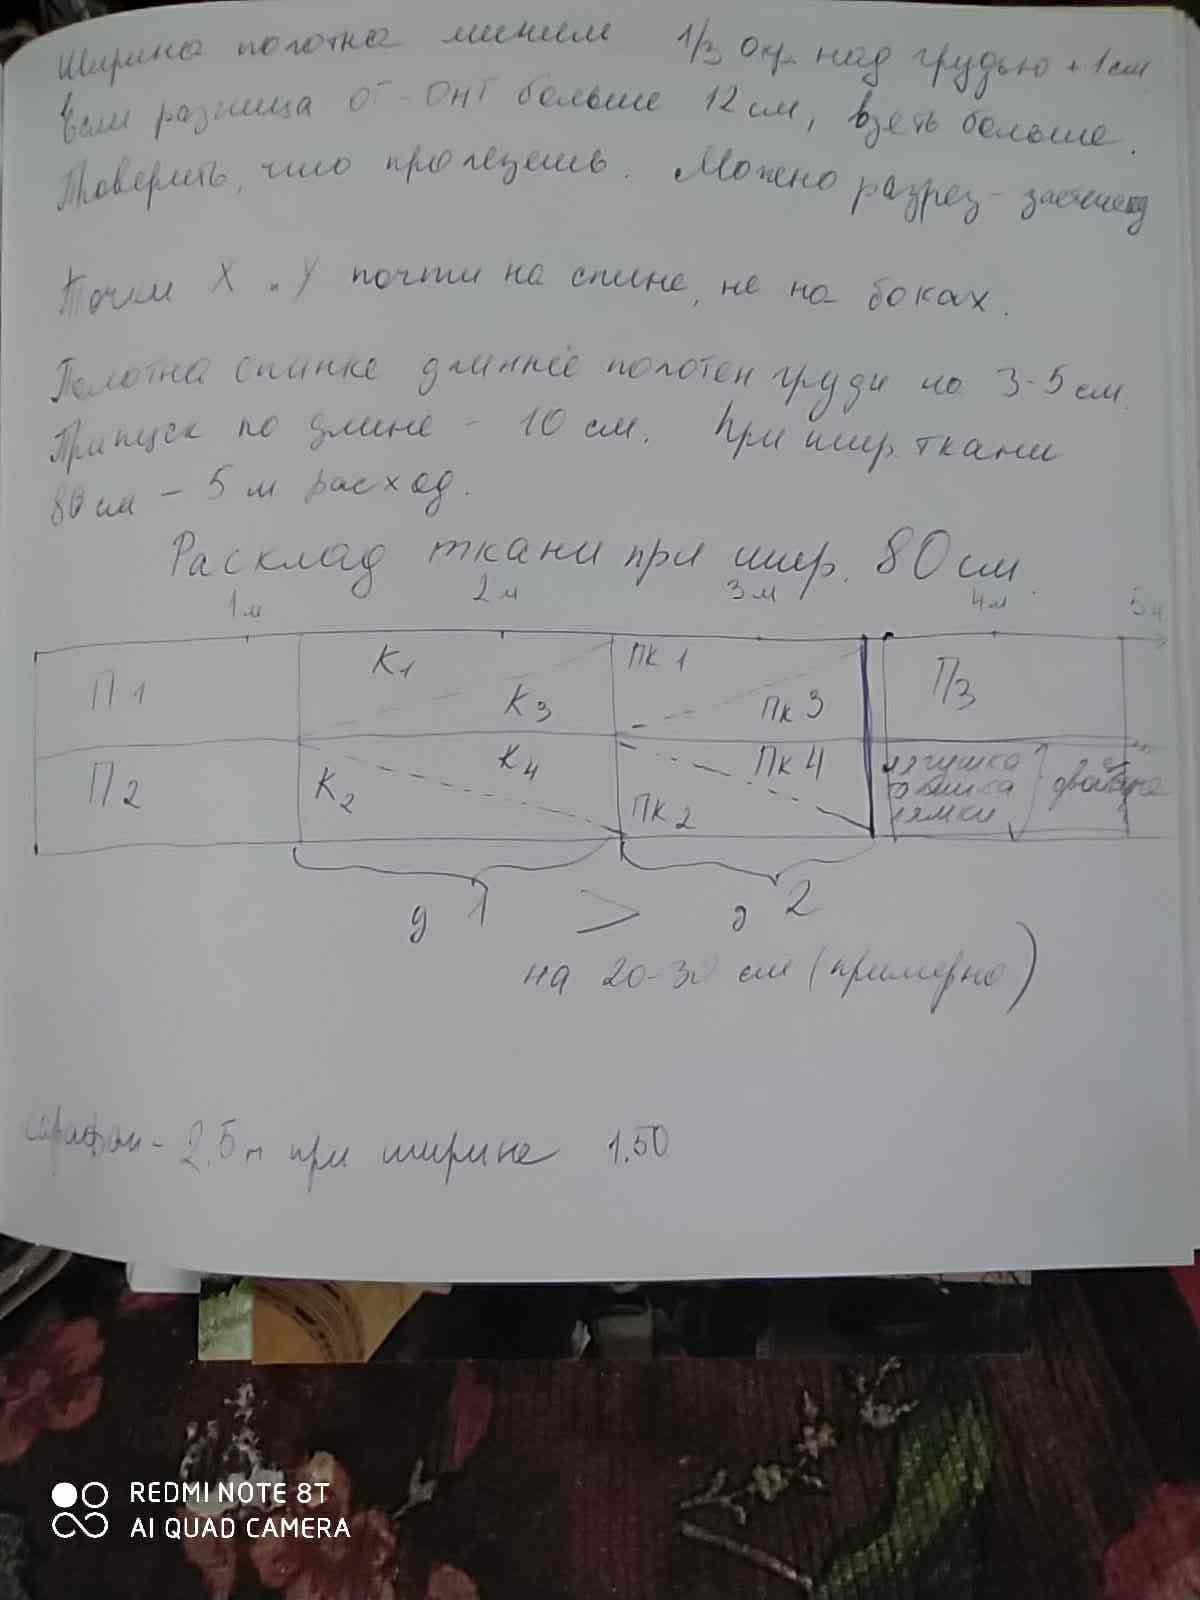 Ширина полотна миним 1/3 Окр. над грудью + 1 см
Если разница ОГ - ОНГ больше 12 см, взеть больше.
Проверить, что пролезешь. Можно разрез - застежку
Точки X и У почти на спине, не на боках.
Полотна спинке длиннее полотен груди на 3-5 см.
Припуск по длине - 10 см. При шир. ткани
80 см - 5 м расход.
Расклад ткани при шир. 80 см.
1м 2м 3м 4м 5м
П1 К1 К3 ПК1 ПК3 П3
П2 К2 К4 ПК2 ПК4
лямки
д 1 > д 2
на 20-30 см (примерно)
сарафан - 2.5 м при ширине 1.50
REDMI NOTE 8T
AI QUAD CAMERA